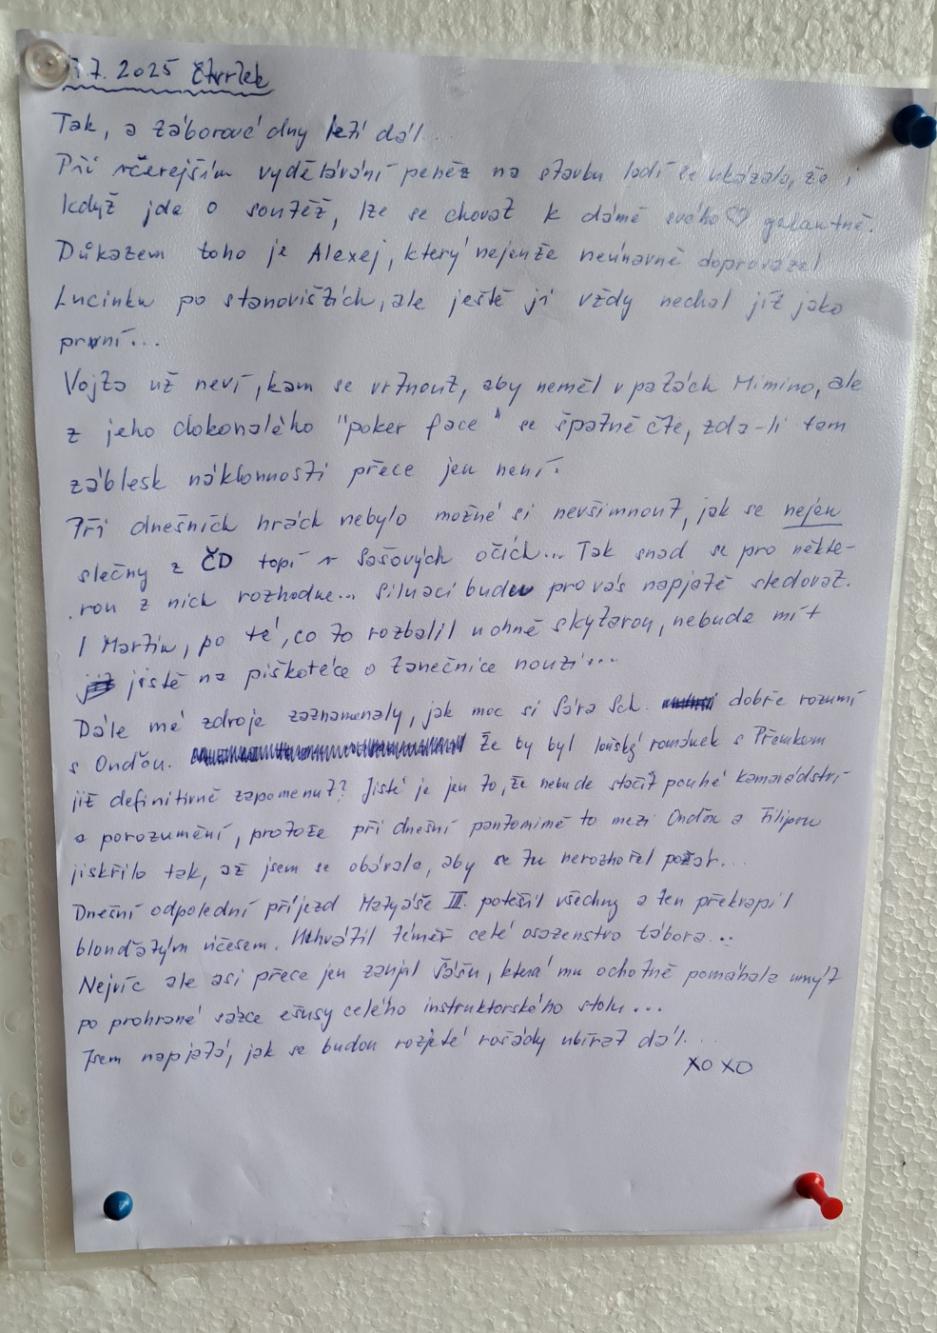 7. 2025 čtvrtek
Tak, a táborové dny běží dál...
Při včerejším vydělávání peněz na stavbu lodí se ukázalo, že i
když jde o soutěž, lze se chovat k dámě svého ♡ galantně.
Důkazem toho je Alexej, který nejenže neúnavně doprovázel
Lucinku po stanovištích, ale ještě ji vždy nechal jít jako
první...
Vojta už neví, kam se vrtnout, aby neměl v patách Mimino, ale
z jeho dokonalého "poker face" se špatně čte, zda-li tam
záblesk náklonnosti přece jen není.
Při dnešních hrách nebylo možné si nevšimnout, jak se nejen
slečny z ČD topí v Sašových očích... Tak snad se pro někte-
rou z nich rozhodne... Situaci budu pro vás napjatě sledovat.
I Martin, po té, co to rozbalil u ohně s kytarou, nebude mít
jistě na piškotéce o tanečnice nouzi...
Dále mé zdroje zaznamenaly, jak moc si Sára Sch. dobře rozumí
s Onďou. Že by byl loňský románek s Přemkem
již definitivně zapomenut? Jisté je jen to, že nebude stačit pouhé kamarádství
a porozumění, protože při dnešní pantomimě to mezi Onďou a Filipou
jiskřilo tak, až jsem se obávala, aby se tu nerozhořel požár...
Dnešní odpolední příjezd Matyáše III. potěšil všechny a ten překvapil
blonďatým účesem. Uchvátil téměř celé osazenstvo tábora...
Nejvíc ale asi přece jen zaujal Sášu, která mu ochotně pomáhala umýt
po prohrané sázce ešusy celého instruktorského stolu...
Jsem napjatá, jak se budou rozjeté rošády ubírat dál...
XOXO